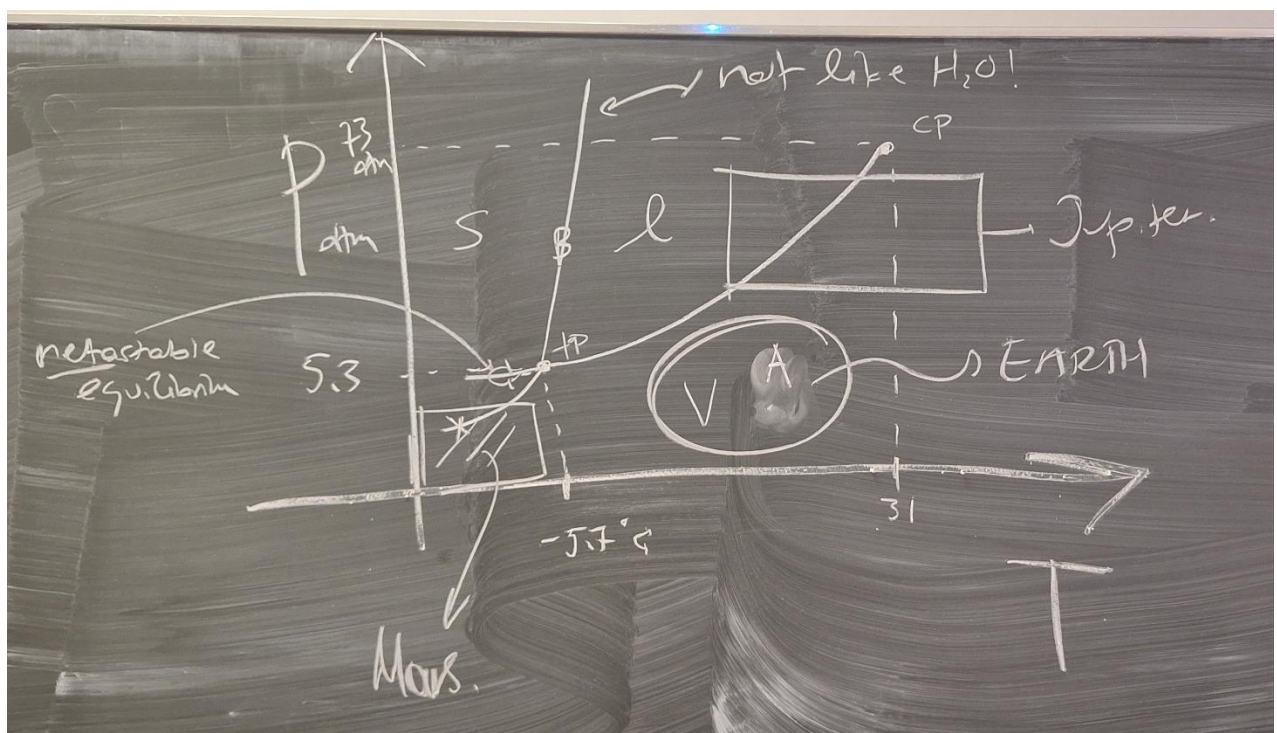 not like H₂O!
P
73
atm
CP
S
B
l
Jupiter.
atm
metastable
equilibrium
5.3
tP
A
V
EARTH
31
-5.7°C
T
Mars.